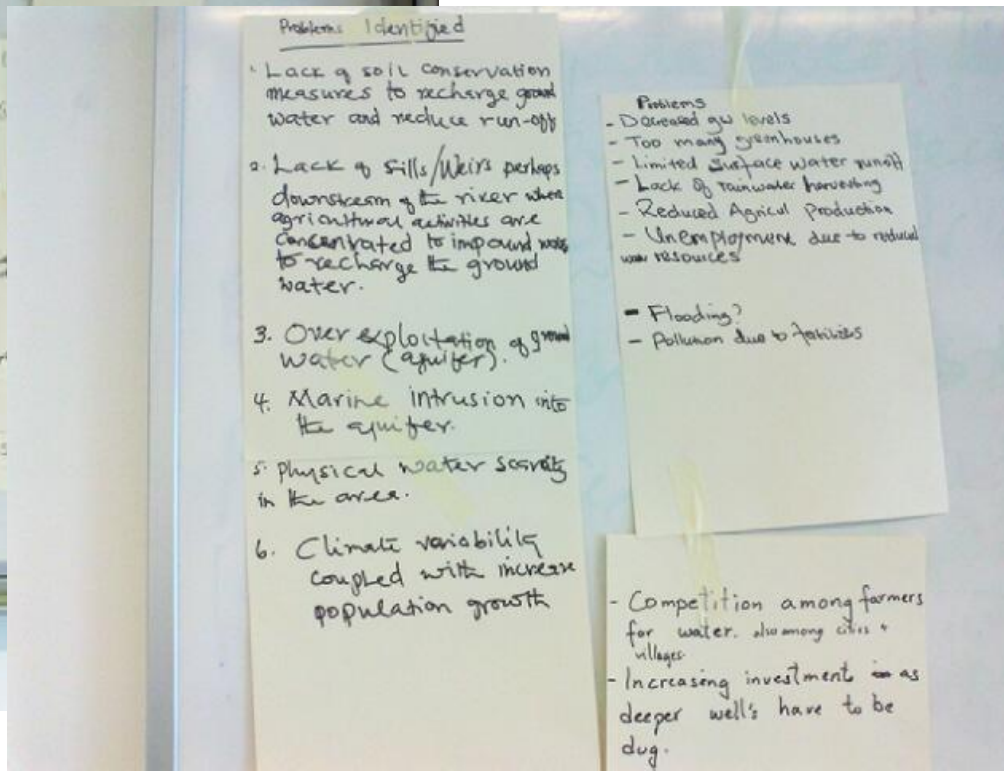 Problems Identified
1. Lack of soil conservation
measures to recharge ground
water and reduce run-off
2. Lack of sills/Weirs perhaps
downstream of the river where
agricultural activities are
concentrated to impound water
to recharge the ground
water.
3. Over exploitation of ground
water (aquifer).
4. Marine intrusion into
the aquifer.
5. Physical water scarcity
in the area.
6. Climate variability
coupled with increase
population growth
Problems
- Decreased gw levels
- Too many greenhouses
- Limited surface water runoff
- Lack of rainwater harvesting
- Reduced Agricul Production
- Unemployment due to reduced
water resources
- Flooding?
- Pollution due to fertilizers
- Competition among farmers
for water. also among cities +
villages.
- Increasing investment as
deeper well's have to be
dug.